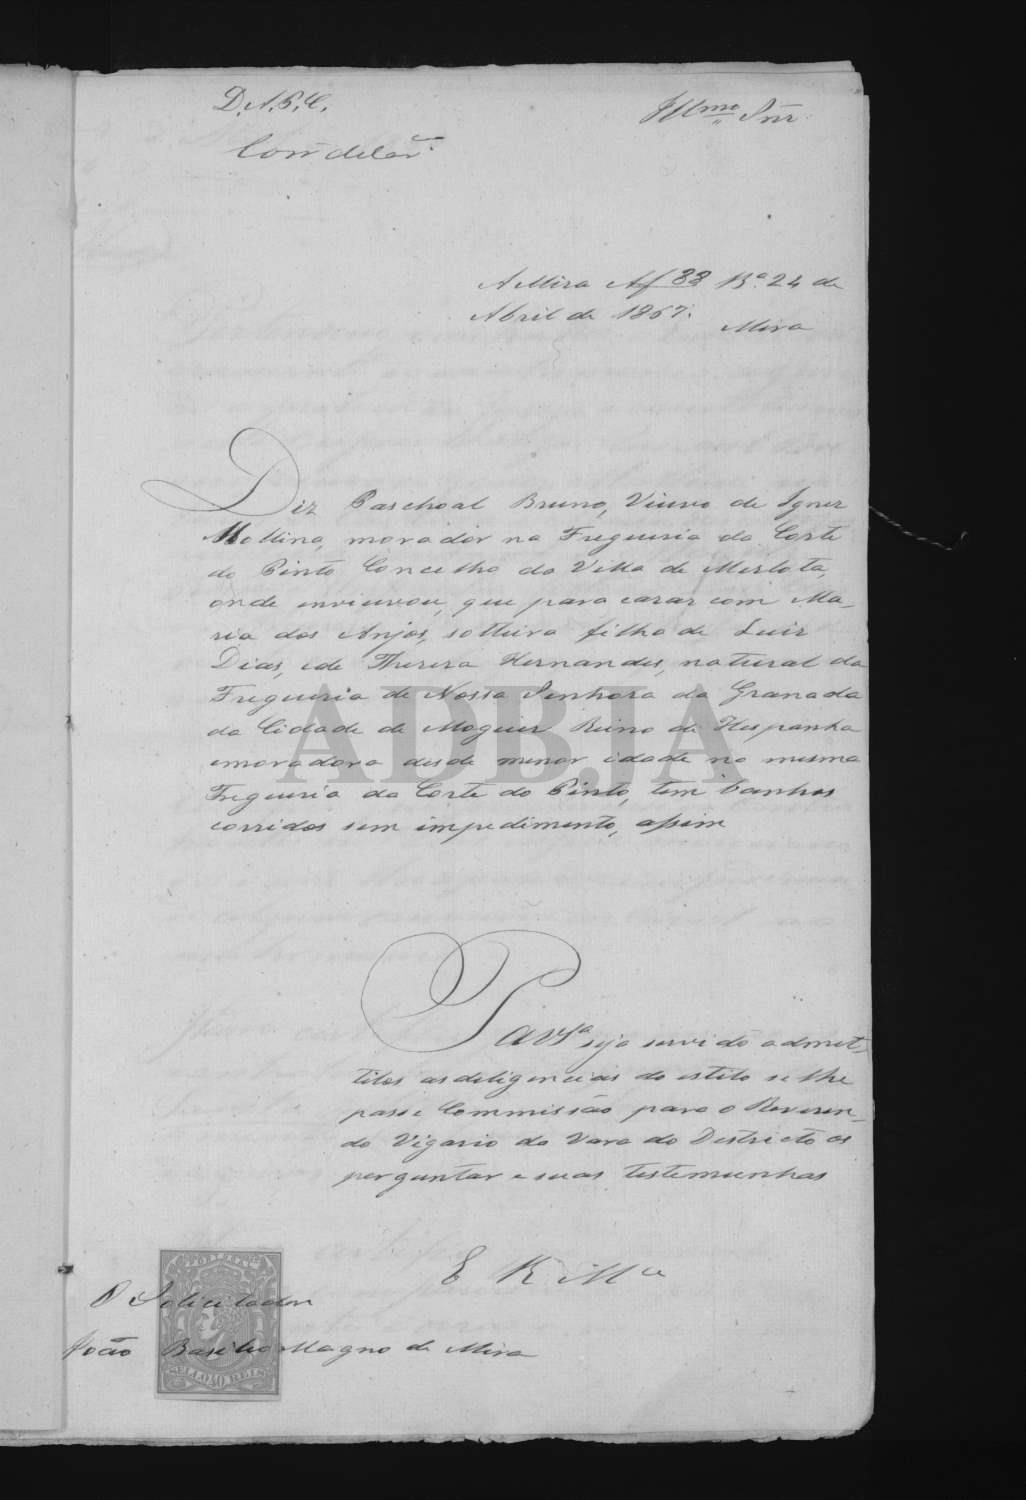 D. N. P. C.
Illmo Snr
A Mira Af 88 Ba 24 de
Abril de 1867.
Mira
Diz Paschoal Bruno, Viuvo de Ignez
Mollina, morador na Freguesia da Corte
do Pinto Concelho da Villa de Mertola,
onde enviuvou, que para casar com Ma-
ria dos Anjos, solteira filha de Luiz
Dias, e de Thereza Hernandes, natural da
Freguesia de Nossa Senhora da Granada
da Cidade de Moguer Reino de Hespanha
emoradora desde menor idade na mesma
Freguesia da Corte do Pinto, tem banhos
corridos sem impedimento, assim
P a VSa seja servido admet-
tilos as deligencias do estilo se lhe
passe Commissão para o Reveren-
do Vigario da Vara do Destricto os
perguntar e suas testemunhas
E R Mce
PORTUGAL
O Solicitador
João Basilio Magno de Mira
SELLO 40 REIS
ADBJA